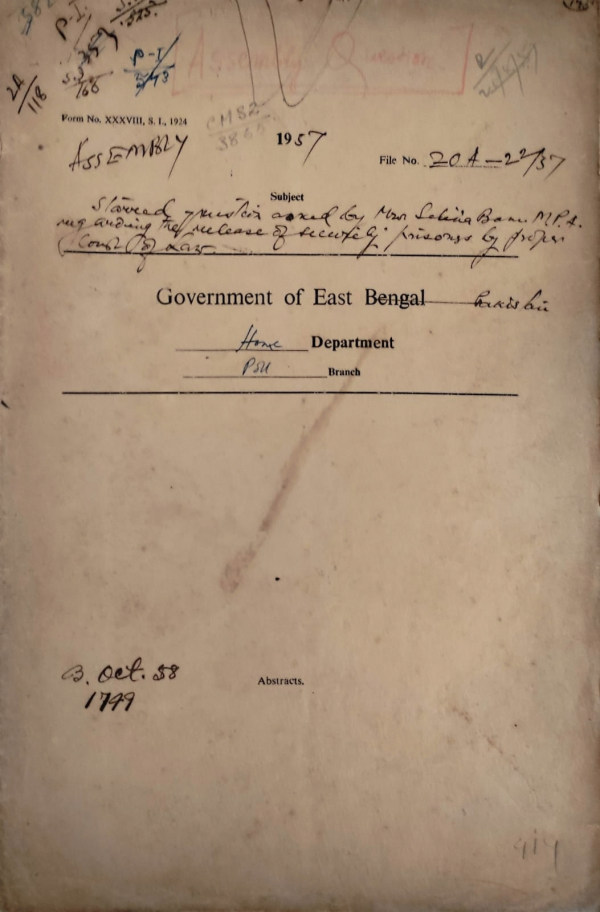 P.I.
S.
525.
P-I/
Assembly Question
2A/118
Form No. XXXVIII, S. I., 1924
ASSEMBLY
1957
File No. 20A-22/57
Subject
Starred question asked by Mrs Selina Banu M.P.A.
regarding the release of security prisoners by proper
Court of Law.
Government of East Bengal Pakistan
Home Department
Poll Branch
B. Oct. 58
1749
Abstracts.
414